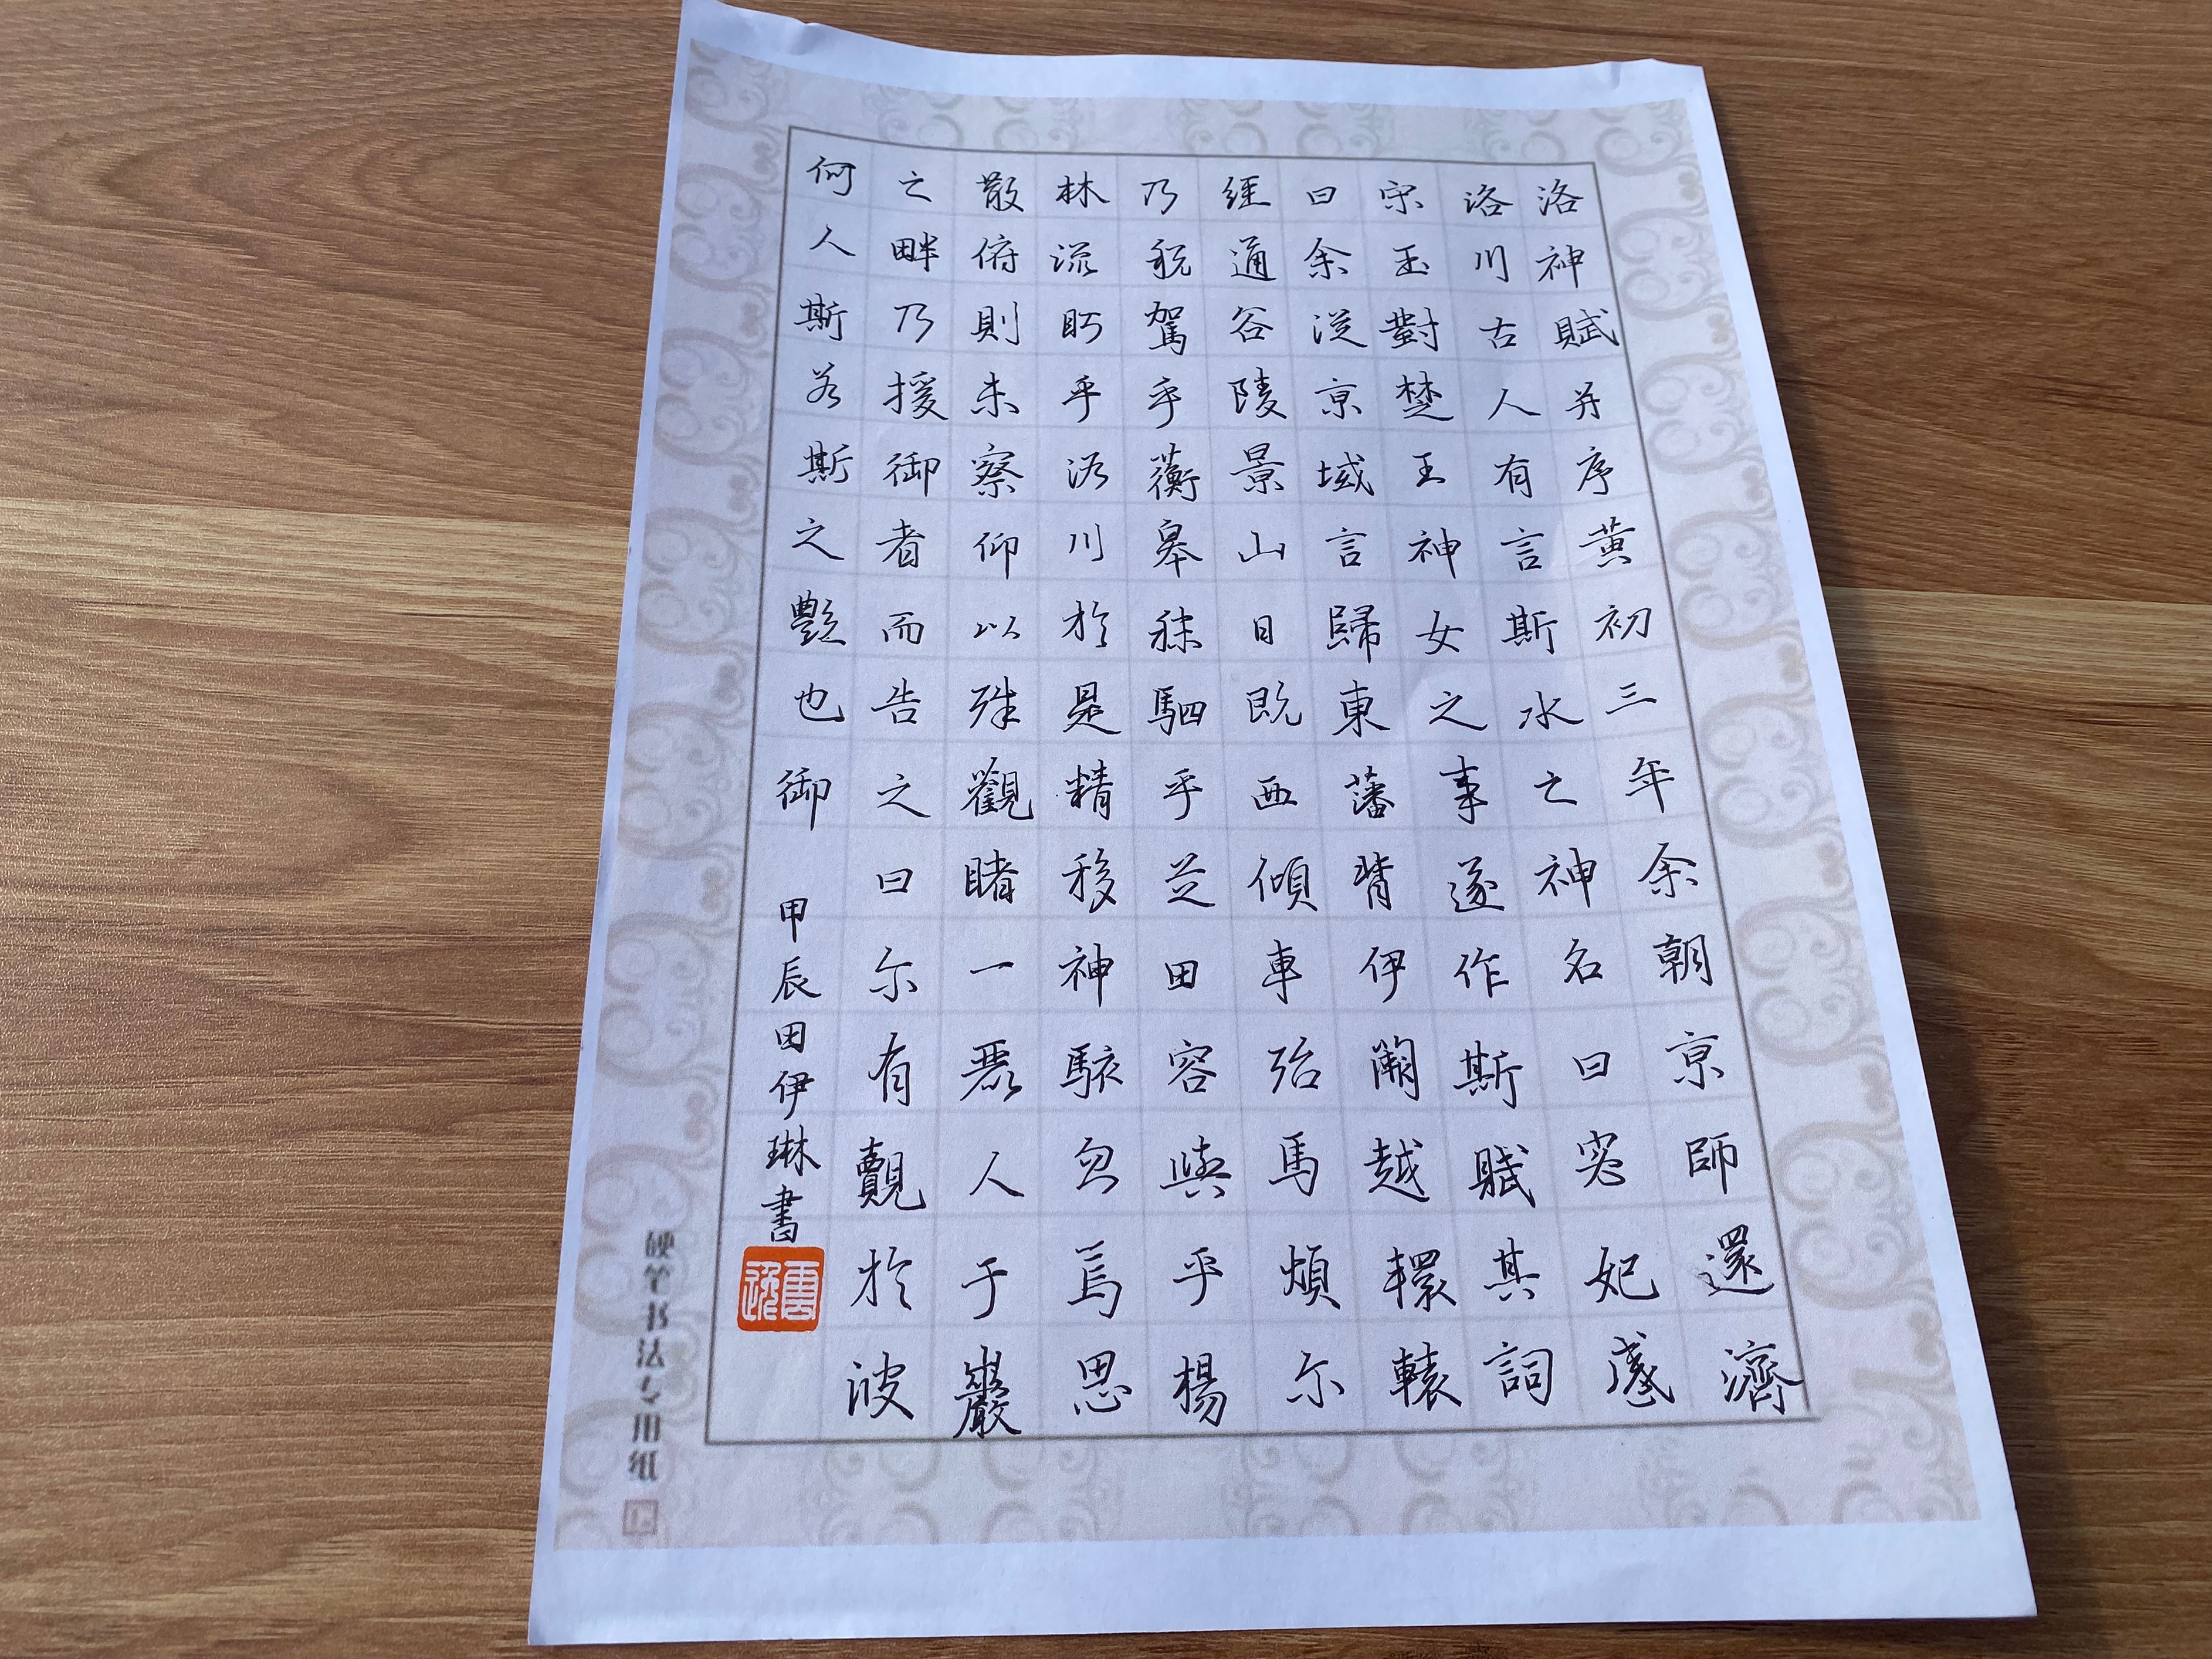 洛神賦并序黄初三年余朝京師還濟
洛川古人有言斯水之神名曰宓妃感
宋玉對楚王神女之事遂作斯賦其詞
曰余従京域言歸東藩背伊闕越轘轅
經通谷陵景山日既西傾車殆馬煩尔
乃税駕乎蘅皋秣駟乎芝田容與乎楊
林流眄乎洛川於是精移神駭忽焉思
散俯則未察仰以殊觀睹一麗人于巖
之畔乃援御者而告之曰尔有覿於彼
何人斯若斯之艷也御
甲辰田伊琳書
雲逸
硬笔书法专用纸